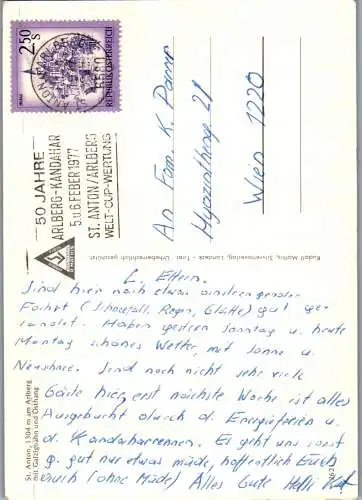 2.50
S
REPUBLIK ÖSTERREICH
50 JAHRE
ARLBERG-KANDAHAR
5.u.6.FEBER 1977
ST. ANTON/ARLBERG
WELT-CUP-WERTUNG
An Fam. K. Panner
Hyazinthweg 21
Wien 1220
Rudolf Mathis, Silvrettaverlag, Landeck - Tirol Urheberrechtlich geschützt
St. Anton, 1304 m am Arlberg
mit Galzigbahn und Osthang
L. Eltern.
Sind hier nach etwas anstrengender
Fahrt (Schneefall, Regen, Glätte) gut ge-
landet. Haben gestern Sonntag u. heute
Montag schönes Wetter, mit Sonne u.
Neuschnee. Sind noch nicht sehr viele
Gäste hier, erst nächste Woche ist alles
ausgebucht durch d. Energieferien u.
d. Kandaharrennen. Es geht uns sonst
g. gut nur etwas müde, hoffentlich Euch
auch (ohne Müde) Alles Gute Helli